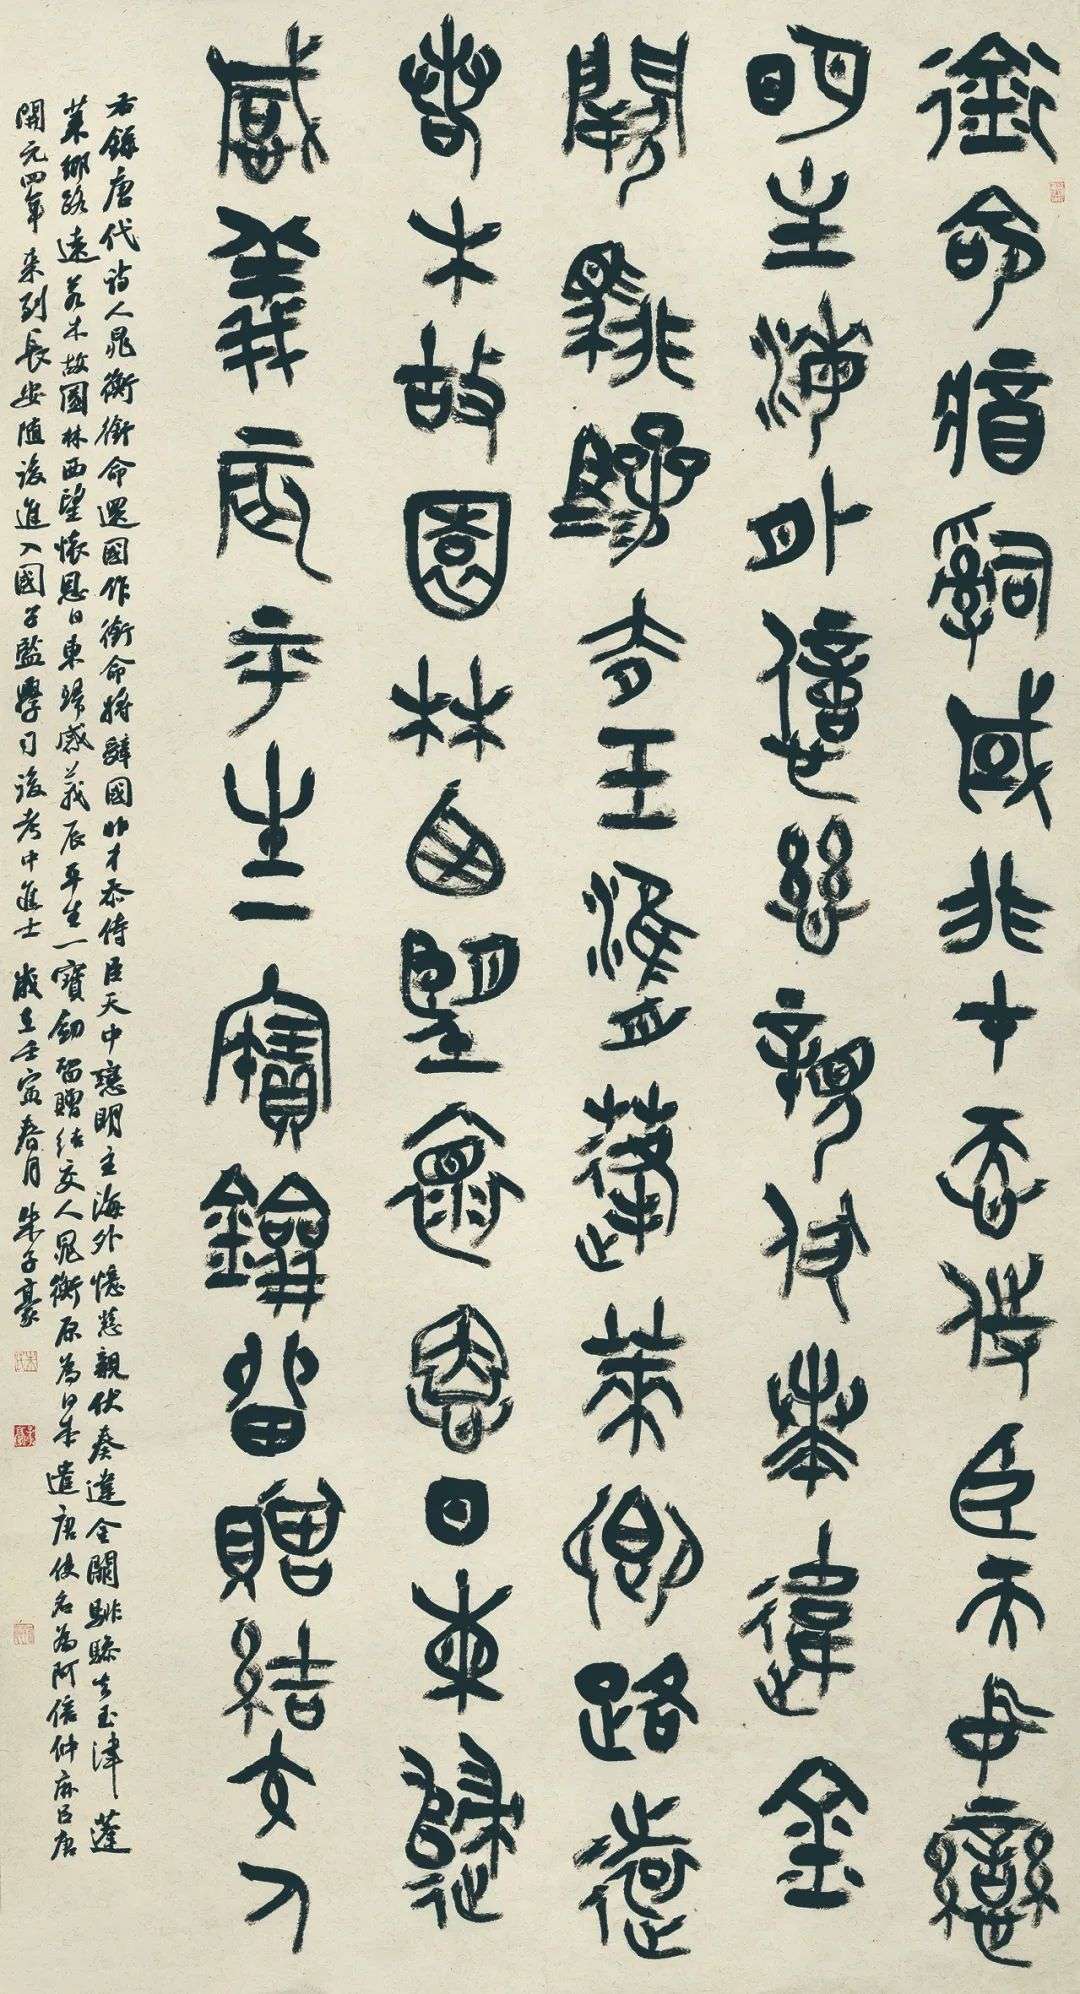 銜命將辭國非才忝侍臣天中戀
明主海外憶慈親伏奏違金
闕騑驂去玉津蓬萊鄉路遠
若木故園林西望懷恩日東歸
感義辰平生一寶劍留贈結交人
右錄唐代詩人晁衡銜命還國作銜命將辭國非才忝侍臣天中戀明主海外憶慈親伏奏違金闕騑驂去玉津蓬
萊鄉路遠若木故園林西望懷恩日東歸感義辰平生一寶劍留贈結交人晁衡原為日本遣唐使名為阿倍仲麻呂唐
開元四年來到長安隨後進入國子監學習後考中進士 歲在壬寅春月朱子豪